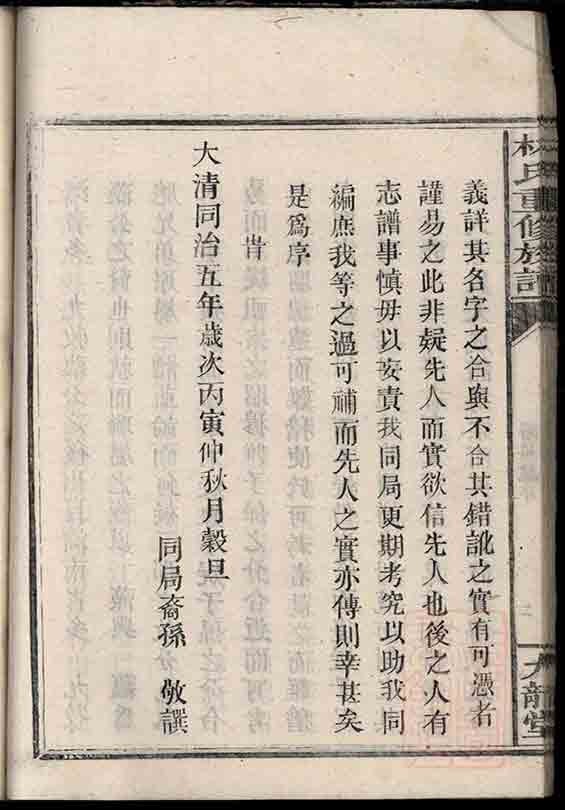 林氏重修族譜
義詳其名字之合與不合其錯訛之實有可憑者
謹易之此非疑先人而實欲信先人也後之人有
志譜事慎毋以妄責我同局更期考究以助我同
編庶我等之過可補而先人之實亦傳則幸甚矣
是爲序
旹
大清同治五年歲次丙寅仲秋月穀旦
同局裔孫 敬譔
三
九龍堂